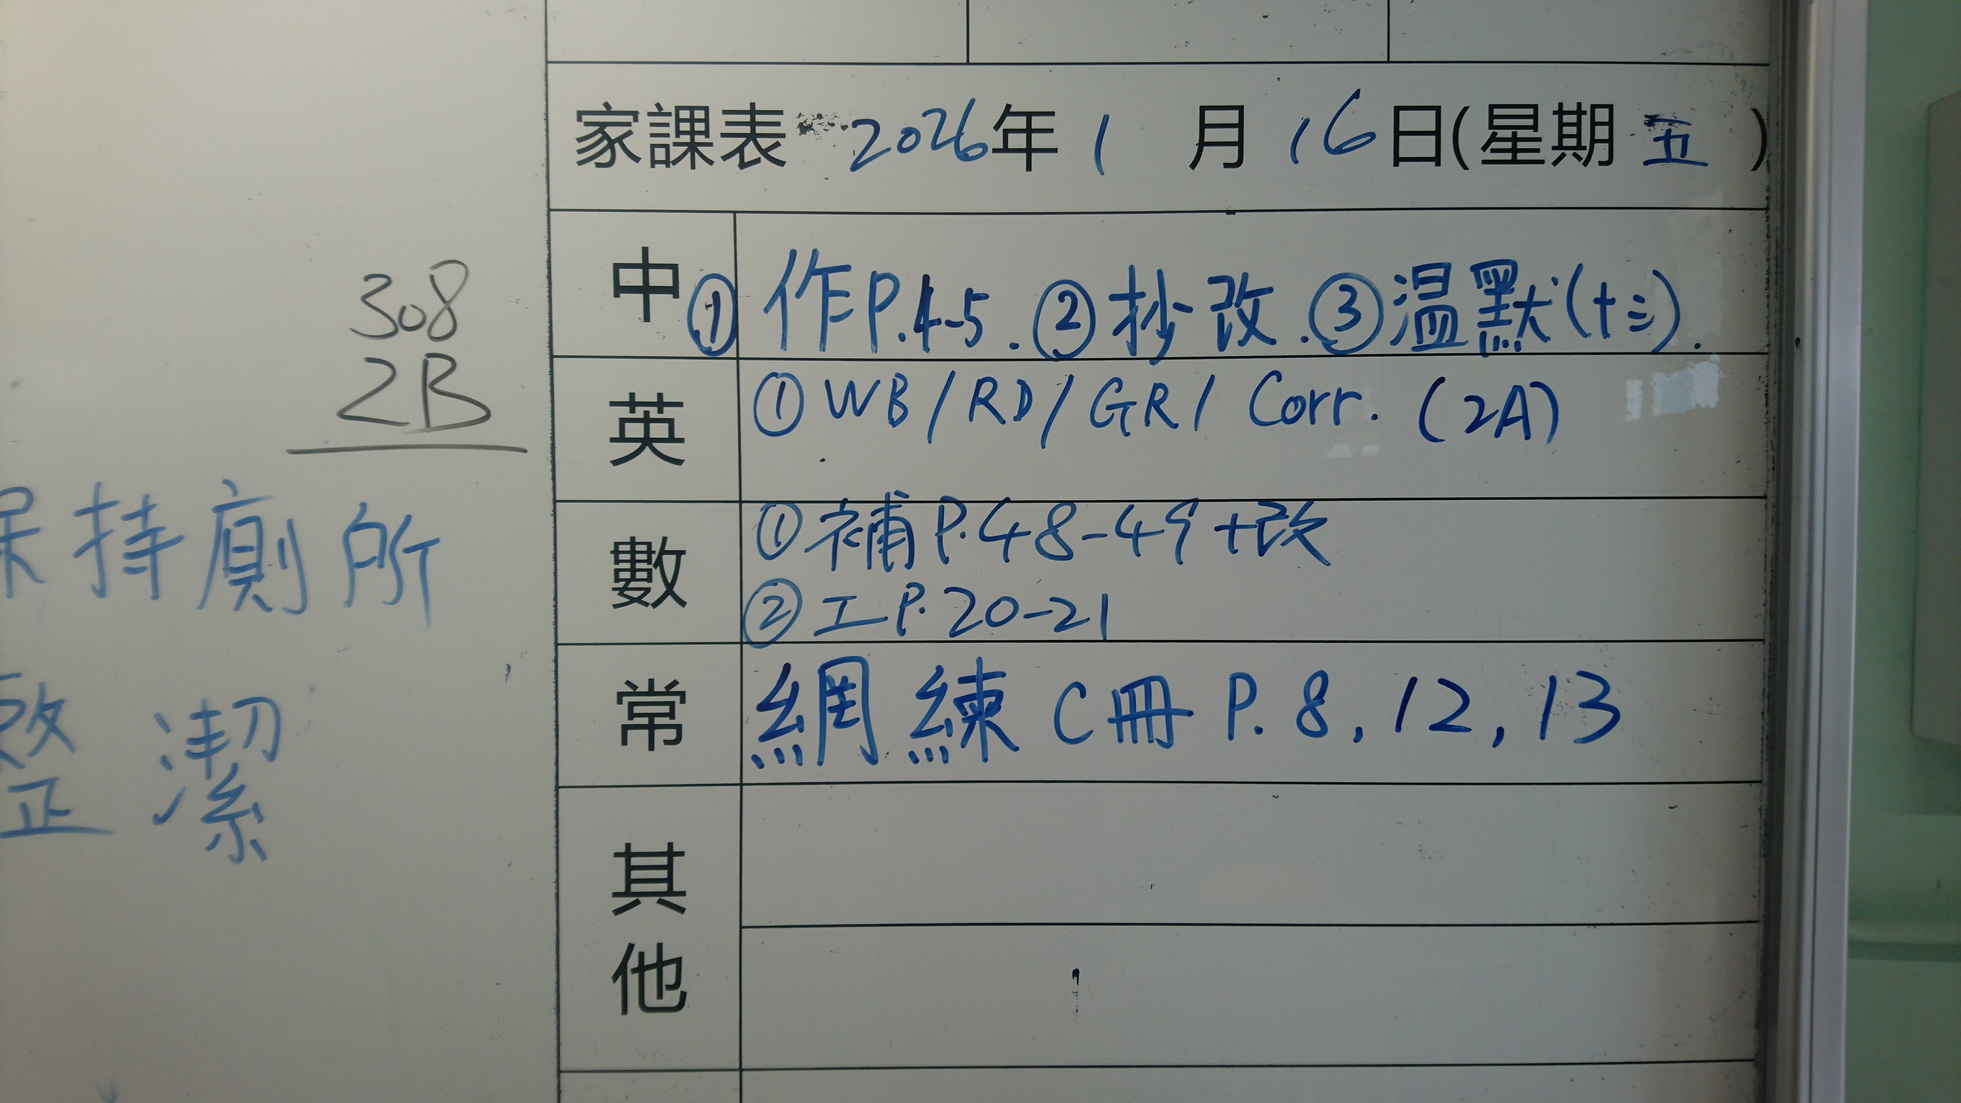 家課表 2026年1月16日(星期五)
中 ① 作P.4-5. ②抄改. ③溫默(十三).
英 ① WB/RD/GR/ Corr. (2A)
數 ① 補P.48-49+改
② 工P.20-21
常 網練C冊P.8,12,13
其他
308
2B
保持廁所
整潔